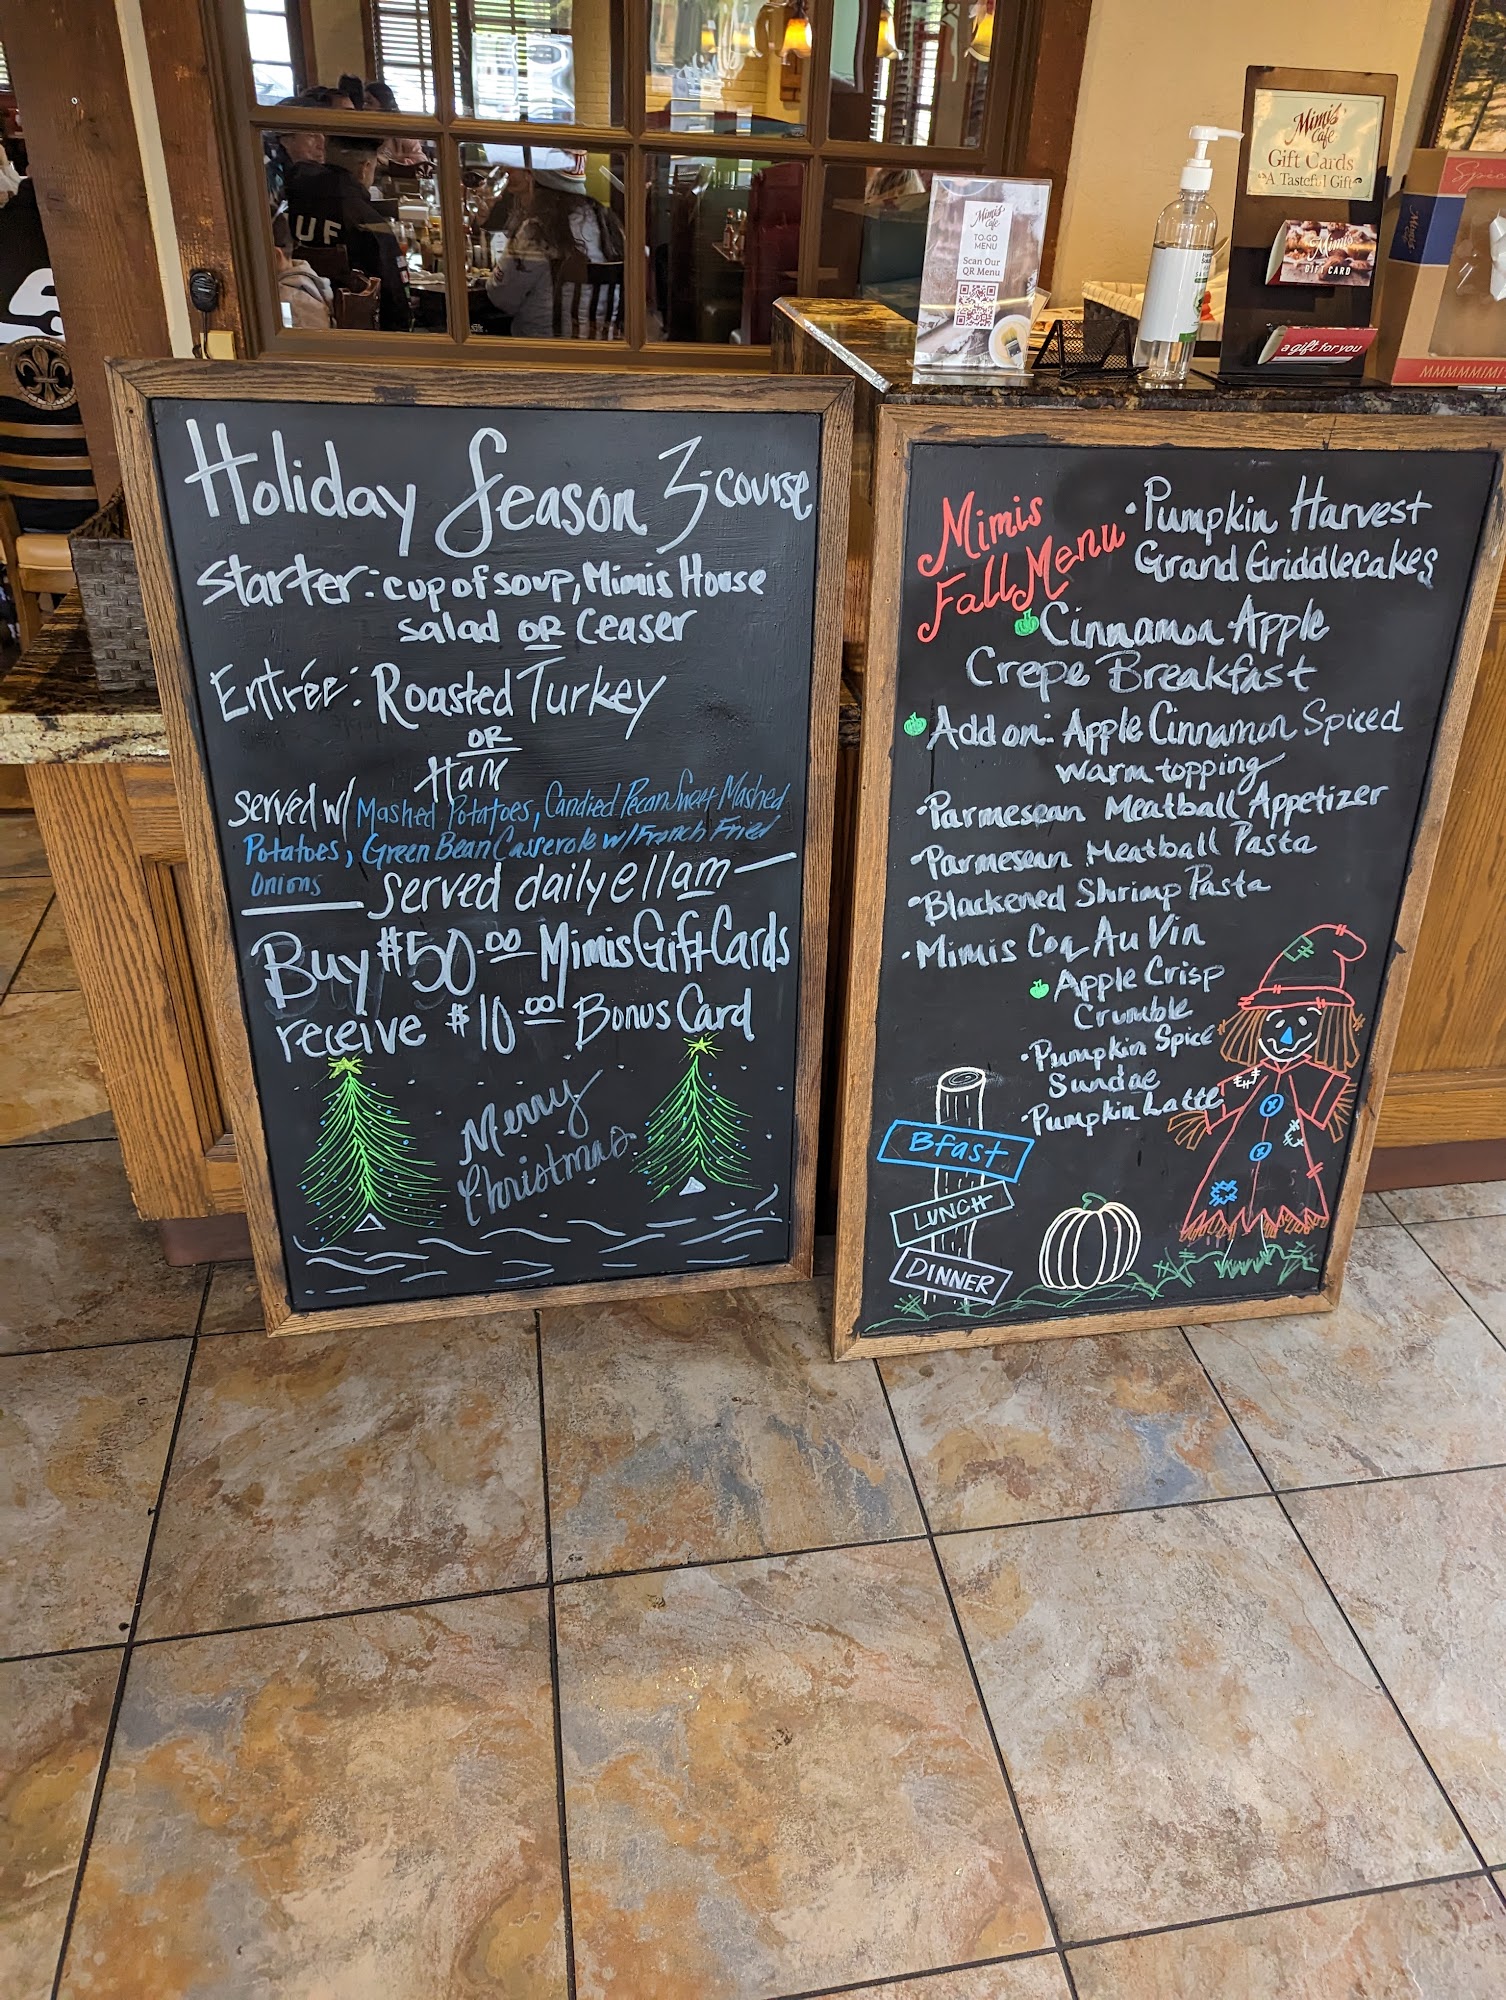 Holiday Season 3-course
Starter: cup of soup, Mimis House
salad OR Ceaser
Entrée: Roasted Turkey
OR
HaM
Served w/ Mashed Potatoes, Candied Pecan Sweet Mashed
Potatoes, Green Bean Casserole w/French Fried
Onions
served daily @ 11am
Buy $50.00 Mimis Gift Cards
receive $10.00 Bonus Card
Merry
Christmas
Mimis
Fall Menu
• Pumpkin Harvest
Grand Griddlecakes
Cinnamon Apple
Crepe Breakfast
Add on: Apple Cinnamon Spiced
warm topping
• Parmesean Meatball Appetizer
• Parmesean Meatball Pasta
• Blackened Shrimp Pasta
• Mimis Coq Au Vin
Apple Crisp
Crumble
• Pumpkin Spice
Sundae
• Pumpkin Latte
Bfast
LUNCH
DINNER
Mimi's
Cafe
TO-GO
MENU
Scan Our
QR Menu
Mimi's
Cafe
Gift Cards
A Tasteful Gift
Mimi's
GIFT CARD
a gift for you
MMMMMIMI
UF